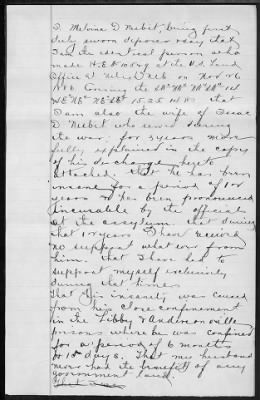 I Melvina D Nesbit, being first
duly sworn deposes & says that
I am the identical person who
made H.E. No at the U.S. Land
Office at Neligh Neb on Nov
Covering the
15.25 14 W. that
I am also the wife of Isaac
D Nesbit who served during
the war; for years more
fully explained in the copy
of his discharge hereto
attached. that he has been
insane for a period of 18
years & has been pronounced
incurable by the officials
at the assylum that during
that 18 years I have received
no support what ever from
him. that I have had to
support myself exclusively
during that time
That his insanity was caused
from his close confinement
in the Libby & Andersonville
prisons where he was confined
for a period of 6 months
& 18 days. That my husband
never had the benefit of any
government land.